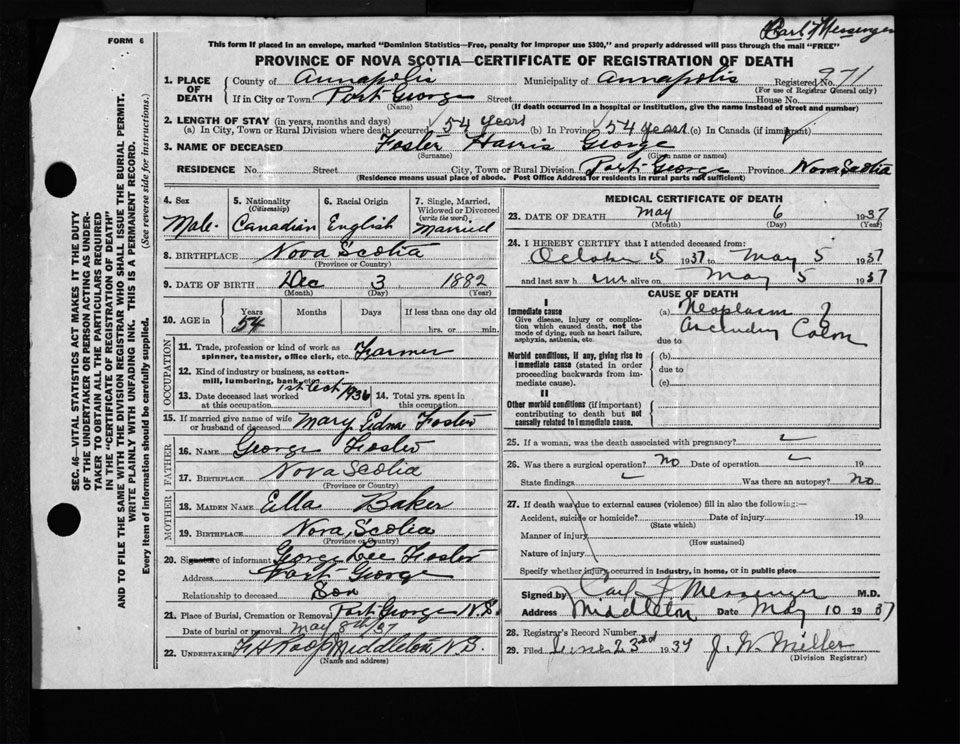 Carl Messenger
FORM 6
This form if placed in an envelope, marked "Dominion Statistics—Free, penalty for improper use $300," and properly addressed will pass through the mail "FREE"
PROVINCE OF NOVA SCOTIA—CERTIFICATE OF REGISTRATION OF DEATH
1. PLACE OF DEATH County of Annapolis Municipality of Annapolis Registered No. 971
(For use of Registrar General only)
If in City or Town Port George Street House No.
(Name) (If death occurred in a hospital or institution, give the name instead of street and number)
2. LENGTH OF STAY (in years, months and days)
(a) In City, Town or Rural Division where death occurred 54 years (b) In Province 54 years (c) In Canada (if immigrant)
3. NAME OF DECEASED Foster Harris George
(Surname) (Given name or names)
RESIDENCE No. Street City, Town or Rural Division Port George Province Nova Scotia
(Residence means usual place of abode. Post Office Address for residents in rural parts not sufficient)
SEC. 46—VITAL STATISTICS ACT MAKES IT THE DUTY
OF THE UNDERTAKER OR PERSON ACTING AS UNDER-
TAKER TO OBTAIN ALL THE PARTICULARS REQUIRED
IN THE "CERTIFICATE OF REGISTRATION OF DEATH"
AND TO FILE THE SAME WITH THE DIVISION REGISTRAR WHO SHALL ISSUE THE BURIAL PERMIT.
WRITE PLAINLY WITH UNFADING INK. THIS IS A PERMANENT RECORD.
Every item of information should be carefully supplied. (See reverse side for instructions.)
4. Sex 5. Nationality (Citizenship) 6. Racial Origin 7. Single, Married, Widowed or Divorced (write the word)
Male Canadian English Married
8. BIRTHPLACE Nova Scotia
(Province or Country)
9. DATE OF BIRTH Dec 3 1882
(Month) (Day) (Year)
10. AGE in Years Months Days If less than one day
54 hrs. or min.
OCCUPATION
11. Trade, profession or kind of work as
spinner, teamster, office clerk, etc. Farmer
12. Kind of industry or business, as cotton-
mill, lumbering, bank, etc.
13. Date deceased last worked at this occupation 1st Oct 1936 14. Total yrs. spent in this occupation
15. If married give name of wife
or husband of deceased Mary Edna Foster
FATHER
16. Name George Foster
17. BIRTHPLACE Nova Scotia
(Province or Country)
MOTHER
18. MAIDEN NAME Ella Baker
19. BIRTHPLACE Nova Scotia
(Province or Country)
20. Signature of informant George Lee Foster
Address Port George
Relationship to deceased Son
21. Place of Burial, Cremation or Removal Port George N.S.
Date of burial or removal May 8th/37
22. UNDERTAKER F H Roop Middleton N.S.
(Name and address)
MEDICAL CERTIFICATE OF DEATH
23. DATE OF DEATH May 6 1937
(Month) (Day) (Year)
24. I HEREBY CERTIFY that I attended deceased from:
October 15 1937 to May 5 1937
and last saw h im alive on May 5 1937
CAUSE OF DEATH
I
Immediate cause (a) Neoplasm ?
Give disease, injury or complica-
tion which caused death, not the
mode of dying, such as heart failure,
asphyxia, asthenia, etc. due to Ascending Colon
Morbid conditions, if any, giving rise to (b)
immediate cause (stated in order due to
proceeding backwards from im-
mediate cause). (c)
II
Other morbid conditions (if important)
contributing to death but not
causally related to immediate cause.
25. If a woman, was the death associated with pregnancy?
26. Was there a surgical operation? no Date of operation 19
State findings Was there an autopsy? no
27. If death was due to external causes (violence) fill in also the following:—
Accident, suicide or homicide? Date of injury 19
(State which)
Manner of injury
(How sustained)
Nature of injury
Specify whether injury occurred in industry, in home, or in public place
Signed by Carl J Messenger M.D.
Address Middleton Date May 10 1937
28. Registrar's Record Number
29. Filed June 23rd 1937 J. W. Miller
(Division Registrar)